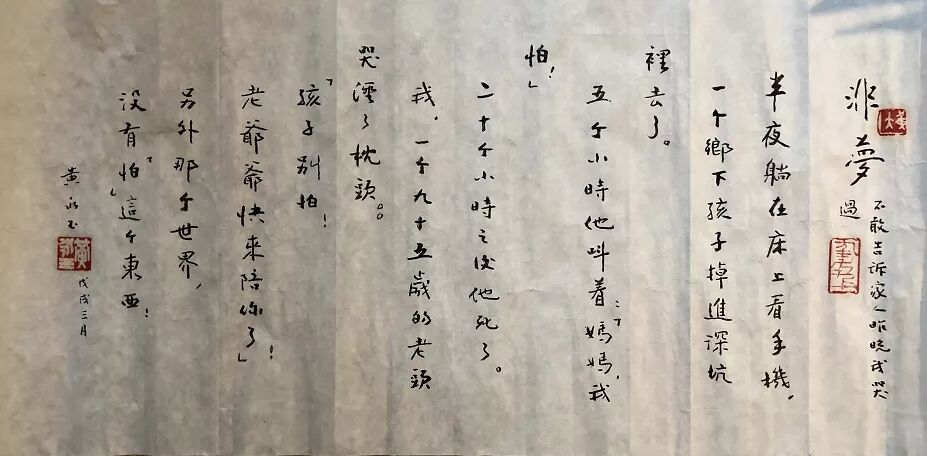 非夢
不敢告訴家人昨晚我哭
過
半夜躺在床上看手機，
一个鄉下孩子掉進深坑
裡去了。
五个小時他叫着：「媽媽，我
怕！」
二十个小時之後他死了。
我，一个九十五歲的老頭
哭溼了枕頭。
「孩子別怕！
老爺爺快來陪你了！」
另外那个世界，
沒有「怕」這个東西！
黃永玉
戊戌三月